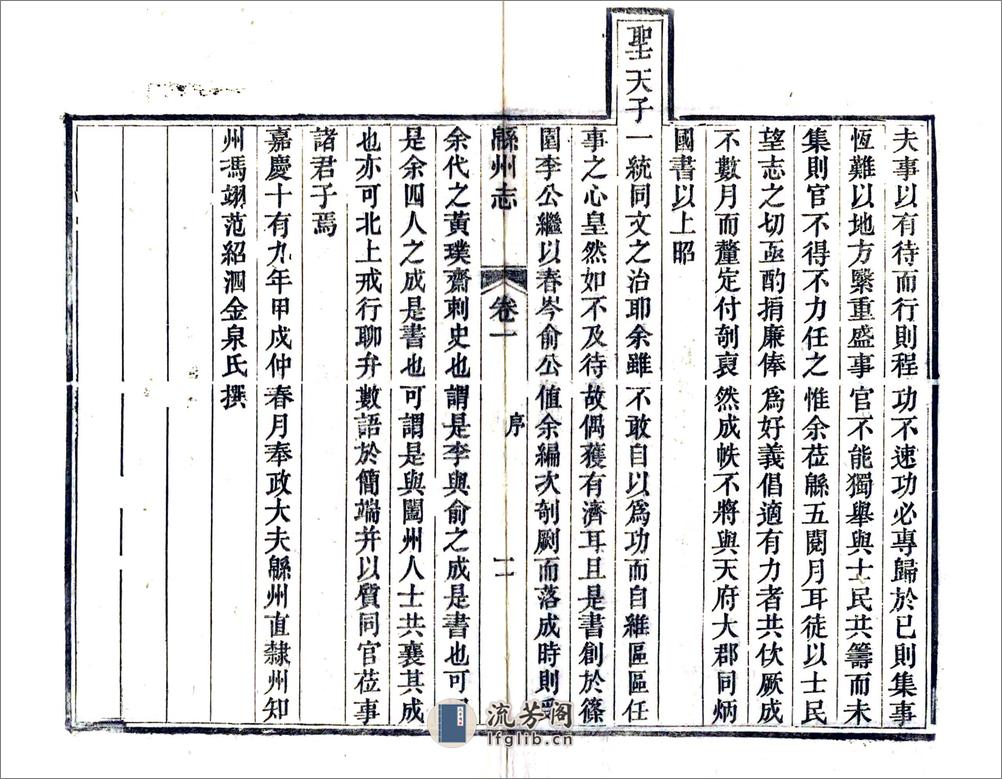 夫事以有待而行則程功不速功必專歸於已則集事
恆難以地方緊重盛事官不能獨舉與士民共籌而未
集則官不得不力任之惟余莅緜五閱月耳徒以士民
望志之切亟酌捐廉俸爲好義倡適有力者共伙厥成
不數月而釐定付剞裒然成帙不將與天府大郡同炳
國書以上昭
聖天子一統同文之治耶余雖不敢自以爲功而自維區區任
事之心皇然如不及待故偶獲有濟耳且是書創於篠
園李公繼以春岑俞公值余編次剞劂而落成時則
緜州志
卷一
序
二
余代之黃璞齋刺史也謂是李與俞之成是書也可
是余四人之成是書也可謂是與闔州人士共襄其成
也亦可北上戒行聊弁數語於簡端并以質同官莅事
諸君子焉
嘉慶十有九年甲戍仲春月奉政大夫緜州直隸州知
州馮翊范紹泗金泉氏撰
流芳阁
lfglib.cn